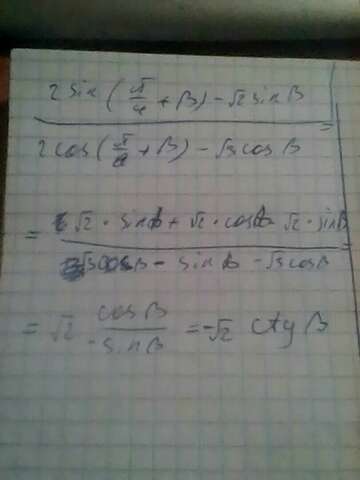 2 sin (π/4 + β) - √2 sin β
2 cos (π/6 + β) - √3 cos β =
= √2 · sin β + √2 · cos β - √2 · sin β
√3 cos β - sin β - √3 cos β
= √2 cos β / - sin β = - √2 ctg β